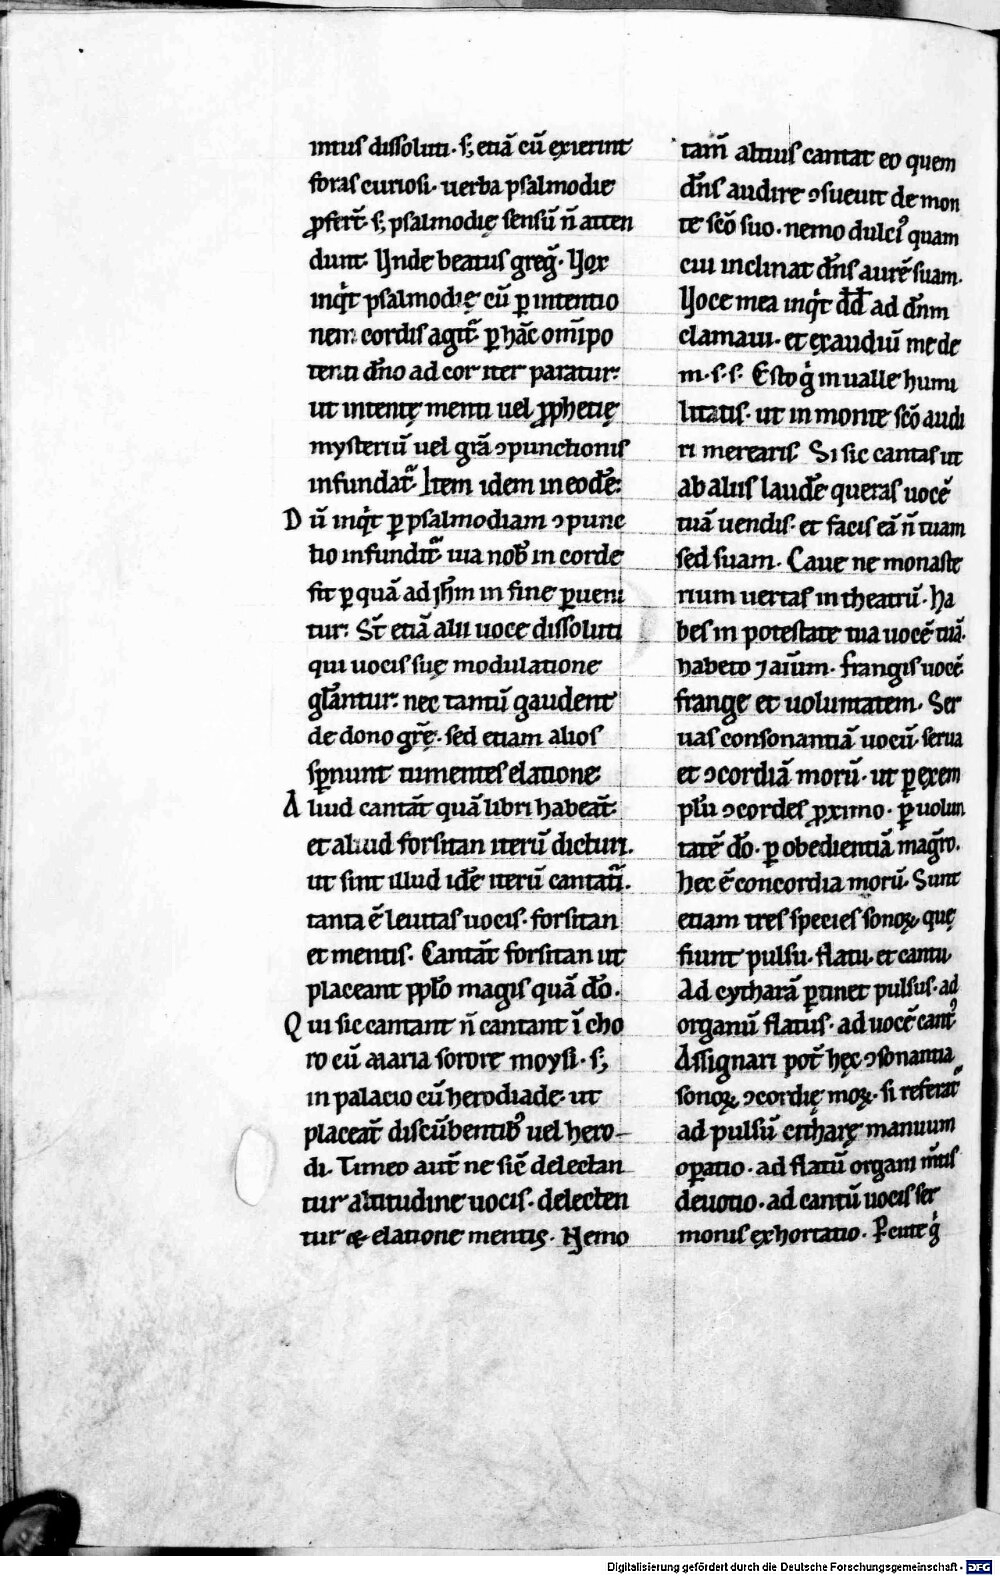 intus dissoluti· s; etiā cū exierint
foras curiosi· uerba psalmodie
ꝓfert̄· s; psalmodię sensū n̄ atten
dunt· Unde beatus greḡ· Uox
inqͥt psalmodię cū ꝑ intentio
nem cordis agit᷑· ꝑ hāc om̄ipo
tenti dn̄o ad cor iter paratur·
ut intentę menti uel ꝓphetię
mysteriū uel grā ɔpunctionis
infundat᷑· Item idem in eodē·
Dū inqͥt ꝑ psalmodiam ɔpunc
tio infundit᷑· uia nob̄ in corde
fit ꝑ quā ad ih̄m in fine ꝑueni
tur· St̄ etiā alii uoce dissoluti
qui uocis suę modulatione
gl̄antur· nec tantū gaudent
de dono grę̄· sed etiam alios
sꝑnunt tumentes elatione·
Aliud cantāt quā libri habeāt·
et aliud forsitan iterū dicturi·
ut sint illud idē iterū cantat᷑i·
tanta ē leuitas uocis· forsitan
et mentis· Cantāt forsitan ut
placeant ppl̄o magis quā dō·
Qui sic cantant n̄ cantant ī cho
ro cū maria sorore moysi· s;
in palacio cū herodiade· ut
placeāt discūbentib᷒ uel hero-
di· Timeo aut̄ ne sic̄ delectan
tur altitudine uocis· delecten
tur & elatione mentis· Nemo
tam̄ altius cantat eo quem
dn̄s audire ɔsueuit de mon
te scō suo· nemo dulci᷒ quam
cui inclinat dn̄s aurē suam·
Uoce mea inqͥt dd̄ ad dn̄m
clamaui· et exaudiū me de
m· s· s· Esto gͥ in ualle humi
litatis· ut in monte scō audi
ri merearis· Si sic cantas ut
ab aliis laudē queras uocē
tuā uendis· et facis eā n̄ tuam
sed suam· Caue ne monaste
rium uertas in theatrū· Ha
bes in potestate tua uocē tuā·
habeto ⁊ aīum· frangis uocē
frange et uoluntatem· Ser
uas consonantiā uocū· serua
et ɔcordiā morū· ut ꝑ exem
plū ɔcordes ꝓximo· ꝑ uolun
tatē dō· ꝑ obedientiā maḡro·
hec ē concordia morū· Sunt
etiam tres species sonoꝝ· quę
fiunt pulsu· flatu· et cantu·
Ad cytharā ꝑtinet pulsus· ad
organū flatus· ad uocē cant᷒
Assignari pot̄ hęc ɔsonantia
sonoꝝ ɔcordię moꝝ· si referat᷑
ad pulsū citharę manuum
oꝑatio· ad flatū organi m̄tis
deuotio· ad cantū uocis ser
monis exhortatio· Penite gͥ
Digitalisierung gefördert durch die Deutsche Forschungsgemeinschaft - DFG